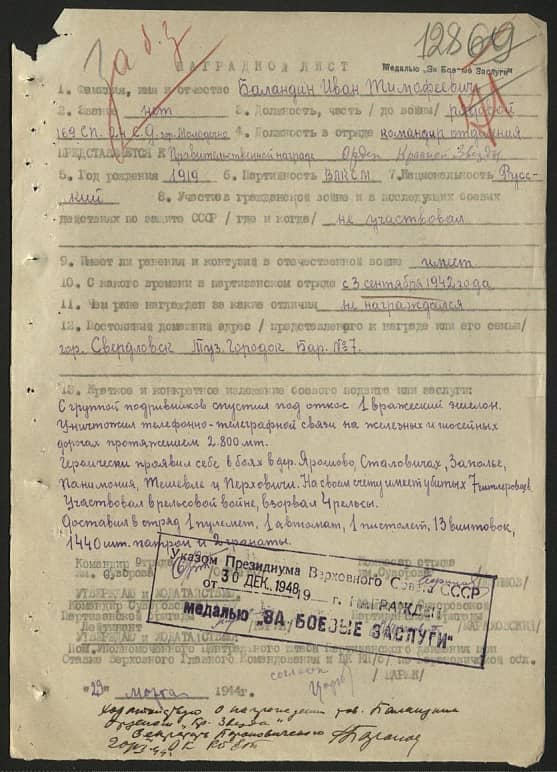 За б.з
12869
НАГРАДНОЙ ЛИСТ
Медалью „За Боевые Заслуги"
1. Фамилия, имя и отчество Баландин Иван Тимофеевич
2. Звание нет 3. Должность, часть / до войны/ рядовой
169 СП. 2й С.Д. гор. Молодечно 4. Должность в отряде командир отделения
ПРЕДСТАВЛЯЕТСЯ К Правительственной награде Орден Красной Звезды
5. Год рождения 1919 6. Партийность ВЛКСМ 7. Национальность Русс-
кий 8. Участие в гражданской войне и в последующих боевых
действиях по защите СССР / где и когда/ не участвовал
9. Имеет ли ранения и контузии в отечественной войне имеет
10. С какого времени в партизанском отряде с 3 сентября 1942 года
11. Чем ране награжден за какие отличия не награждался
12. Постоянный домашний адрес / представленого к награде или его семьи/
гор. Свердловск Туз. Городок Бар. №7.
13. Краткое и конкретное изложение боевого подвига или заслуги:
С группой подрывников спустил под откос 1 вражеский эшелон.
Уничтожил телефонно-телеграфной связи на железных и шосейных
дорогах протяжением 2.800 мт.
Героически проявил себе в боях в дер. Ярошово, Сталовичах, Заполье,
Панимония, Тешевле и Перховичи. На своем счету имеет убитых 7 гитлеровцев.
Участвовал в рельсовой войне, взорвал 4 рельсы.
Доставил в отряд 1 пулемет, 1 автомат, 1 пистолет, 13 винтовок,
1440 шт. патрон и 2 гранаты.
Командир отряда Комиссар отряда
им. Суворова им. Суворова
Указом Президиума Верховного Совета СССР
от 30 ДЕК. 1948 19 г. НАГРАЖДЕН
медалью „ЗА БОЕВЫЕ ЗАСЛУГИ"
УТВЕРЖДАЮ И ХОДАТАЙСТВУЮ:
Командир
Партизанской бригады бригады
Лейтенант
УТВЕРЖДАЮ И ХОДАТАЙСТВУЮ:
Уполномоченного Центрального штаба партизанского движения при
Ставке Верховного Главного Командования и ЦК КП/б/ по Барановичской обл.
согласен
/ЦАРЮК/
"29" марта 1944г.
Ходатайствую о награждении тов. Баландина
Орденом „Кр. Звезда"
Секретарь Барановического
ОК КП/б/Б